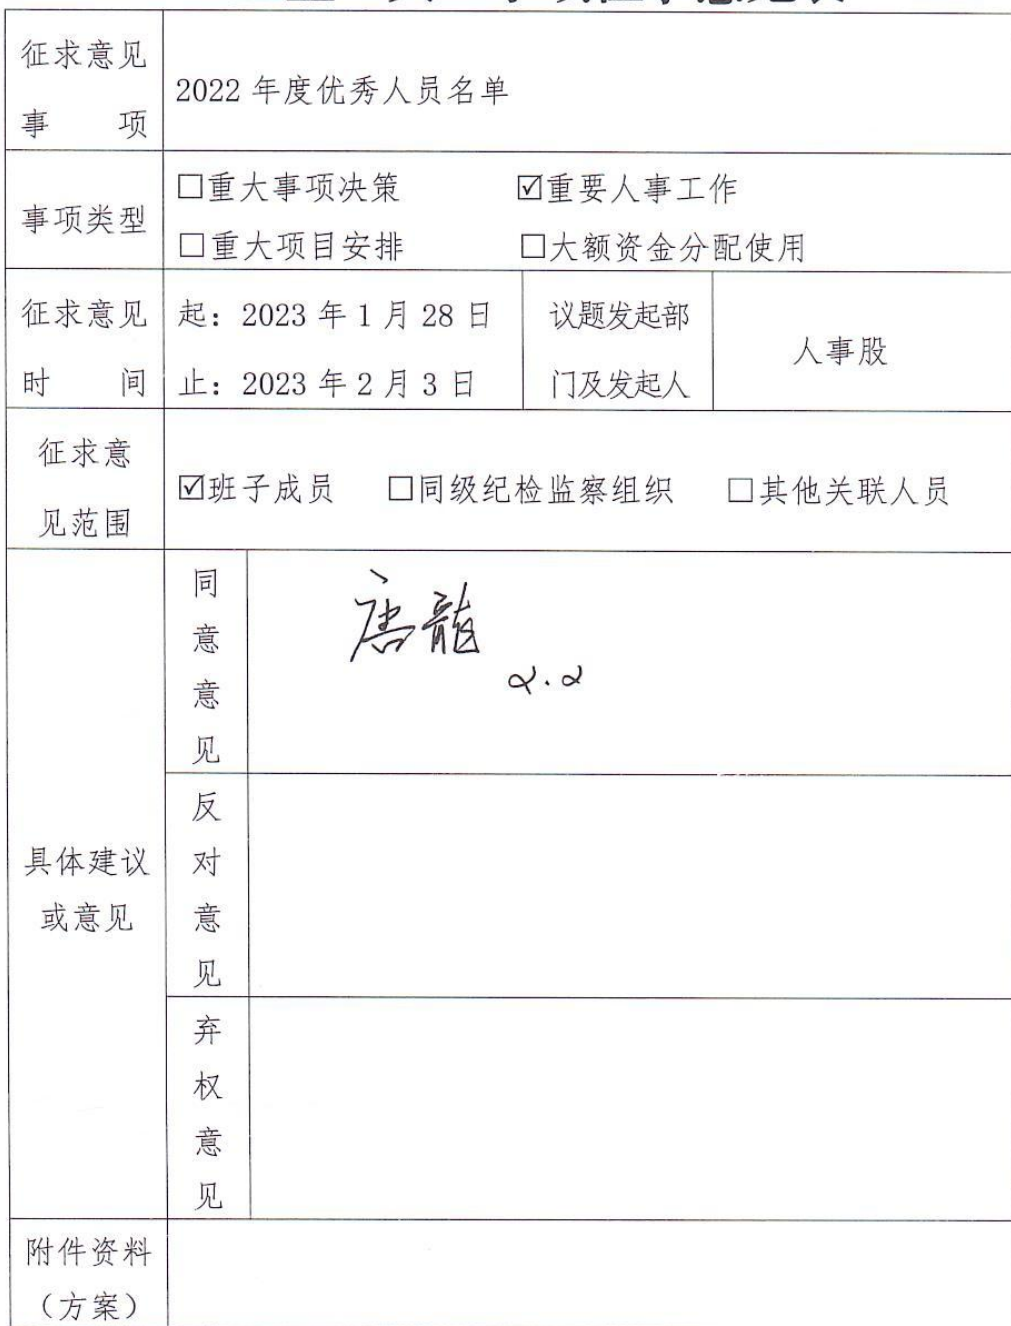 征求意见
事 项
2022 年度优秀人员名单
事项类型
□重大事项决策 ☑重要人事工作
□重大项目安排 □大额资金分配使用
征求意见
时 间
起：2023 年 1 月 28 日
止：2023 年 2 月 3 日
议题发起部
门及发起人
人事股
征求意
见范围
☑班子成员 □同级纪检监察组织 □其他关联人员
具体建议
或意见
同
意
意
见
唐龍
2.2
反
对
意
见
弃
权
意
见
附件资料
（方案）